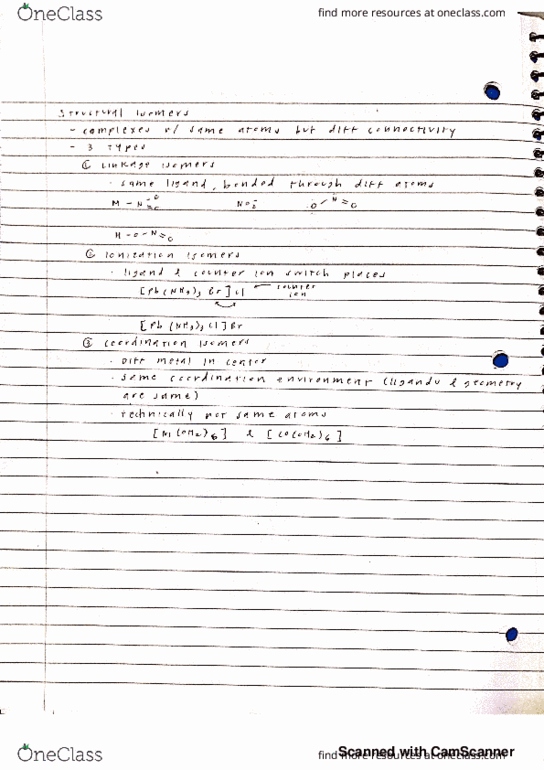 OneClass
find more resources at oneclass.com
Structural Isomers
- complexes w/ same atoms but diff connectivity
- 3 types
① Linkage isomers
· same ligand, bonded through diff atoms
M - N O O NO₂⁻ O N = O
M - O - N = O
② Ionization isomers
· ligand & counter ion switch places
[Pb(NH₃)₅Br]Cl ← counter ion
[Pb(NH₃)₅Cl]Br
③ coordination isomers
· diff metal in center
· same coordination environment (ligands & geometry
are same)
· technically not same atoms
[Ni(OH₂)₆] & [Co(OH₂)₆]
OneClass
find more resources at oneclass.com
Scanned with CamScanner